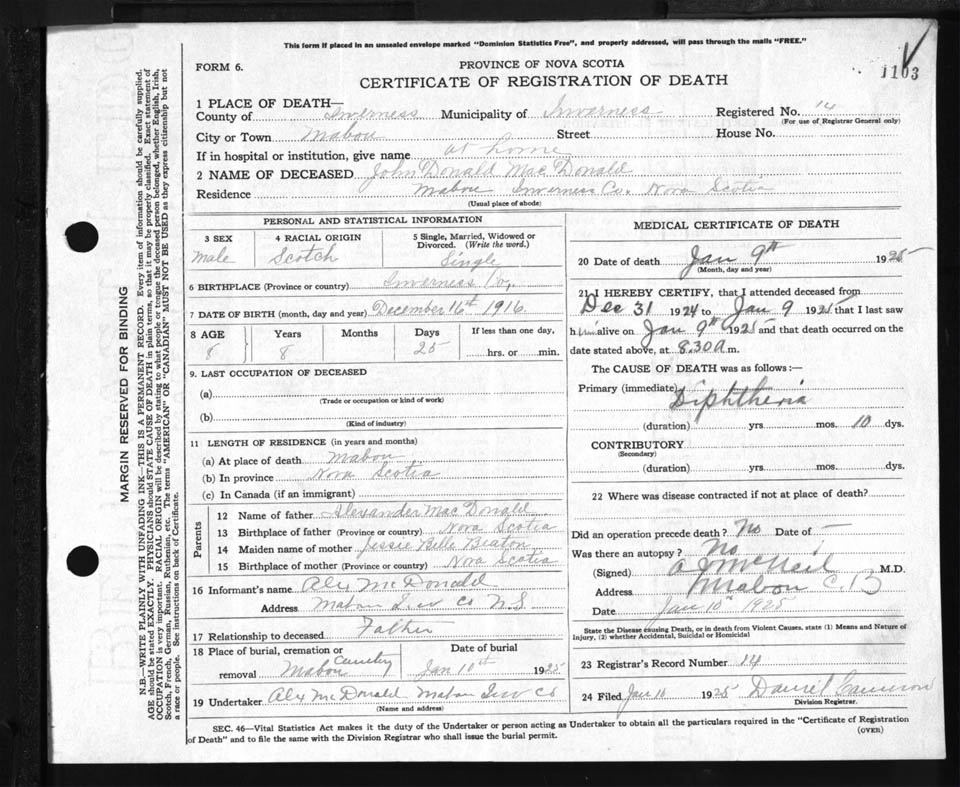 This form if placed in an unsealed envelope marked "Dominion Statistics Free", and properly addressed, will pass through the mails "FREE."
1103
FORM 6.
PROVINCE OF NOVA SCOTIA
CERTIFICATE OF REGISTRATION OF DEATH
1 PLACE OF DEATH—
County of Inverness Municipality of Inverness Registered No. 14
(For use of Registrar General only)
City or Town Mabou Street House No.
If in hospital or institution, give name at home
2 NAME OF DECEASED John Donald MacDonald
Residence Mabou Inverness Co. Nova Scotia
(Usual place of abode)
PERSONAL AND STATISTICAL INFORMATION
3 SEX 4 RACIAL ORIGIN 5 Single, Married, Widowed or Divorced. (Write the word.)
Male Scotch Single
6 BIRTHPLACE (Province or country) Inverness Co.
7 DATE OF BIRTH (month, day and year) December 16th 1916
8 AGE Years Months Days If less than one day,
8 8 25 hrs. or min.
9. LAST OCCUPATION OF DECEASED
(a)
(Trade or occupation or kind of work)
(b)
(Kind of industry)
11 LENGTH OF RESIDENCE (in years and months)
(a) At place of death Mabou
(b) In province Nova Scotia
(c) In Canada (if an immigrant)
Parents
12 Name of father Alexander MacDonald
13 Birthplace of father (Province or country) Nova Scotia
14 Maiden name of mother Jessie Belle Beaton
15 Birthplace of mother (Province or country) Nova Scotia
16 Informant's name Alex McDonald
Address Mabou Inv Co N.S.
17 Relationship to deceased Father
18 Place of burial, cremation or removal Mabou Cemetery Date of burial Jan 10th 1925
19 Undertaker Alex McDonald Mabou Inv Co
(Name and address)
MEDICAL CERTIFICATE OF DEATH
20 Date of death Jan 9th 1925
(Month, day and year)
21 I HEREBY CERTIFY, that I attended deceased from
Dec 31 1924 to Jan 9 1925 that I last saw
him alive on Jan 9th 1925 and that death occurred on
date stated above, at 8.30 a m.
The CAUSE OF DEATH was as follows:—
Primary (immediate) Diphtheria
(duration) yrs. mos. 10 dys.
CONTRIBUTORY
(Secondary)
(duration) yrs. mos. dys.
22 Where was disease contracted if not at place of death?
Did an operation precede death? No Date of —
Was there an autopsy? No
(Signed) McNeil M.D.
Address Mabou C.B
Date Jan 10th 1925
State the Disease causing Death, or in death from Violent Causes, state (1) Means and Nature of
Injury, (2) whether Accidental, Suicidal or Homicidal
23 Registrar's Record Number 14
24 Filed Jan 10 1925 Daniel Cameron
Division Registrar.
SEC. 46—Vital Statistics Act makes it the duty of the Undertaker or person acting as Undertaker to obtain all the particulars required in the "Certificate of Registration
of Death" and to file the same with the Division Registrar who shall issue the burial permit.
(OVER)
MARGIN RESERVED FOR BINDING
N.B.—WRITE PLAINLY WITH UNFADING INK—THIS IS A PERMANENT RECORD. Every item of information should be carefully supplied.
AGE should be stated EXACTLY. PHYSICIANS should STATE CAUSE OF DEATH in plain terms, so that it may be properly classified. Exact statement of
OCCUPATION is very important. RACIAL ORIGIN will be described by stating to what people or tongue the deceased person belonged, whether English, Irish,
Scotch, French, German, Russian, Ruthenian, etc. The terms "AMERICAN" OR "CANADIAN" MUST NOT BE USED as they express citizenship but not
a race or people. See instructions on back of Certificate.